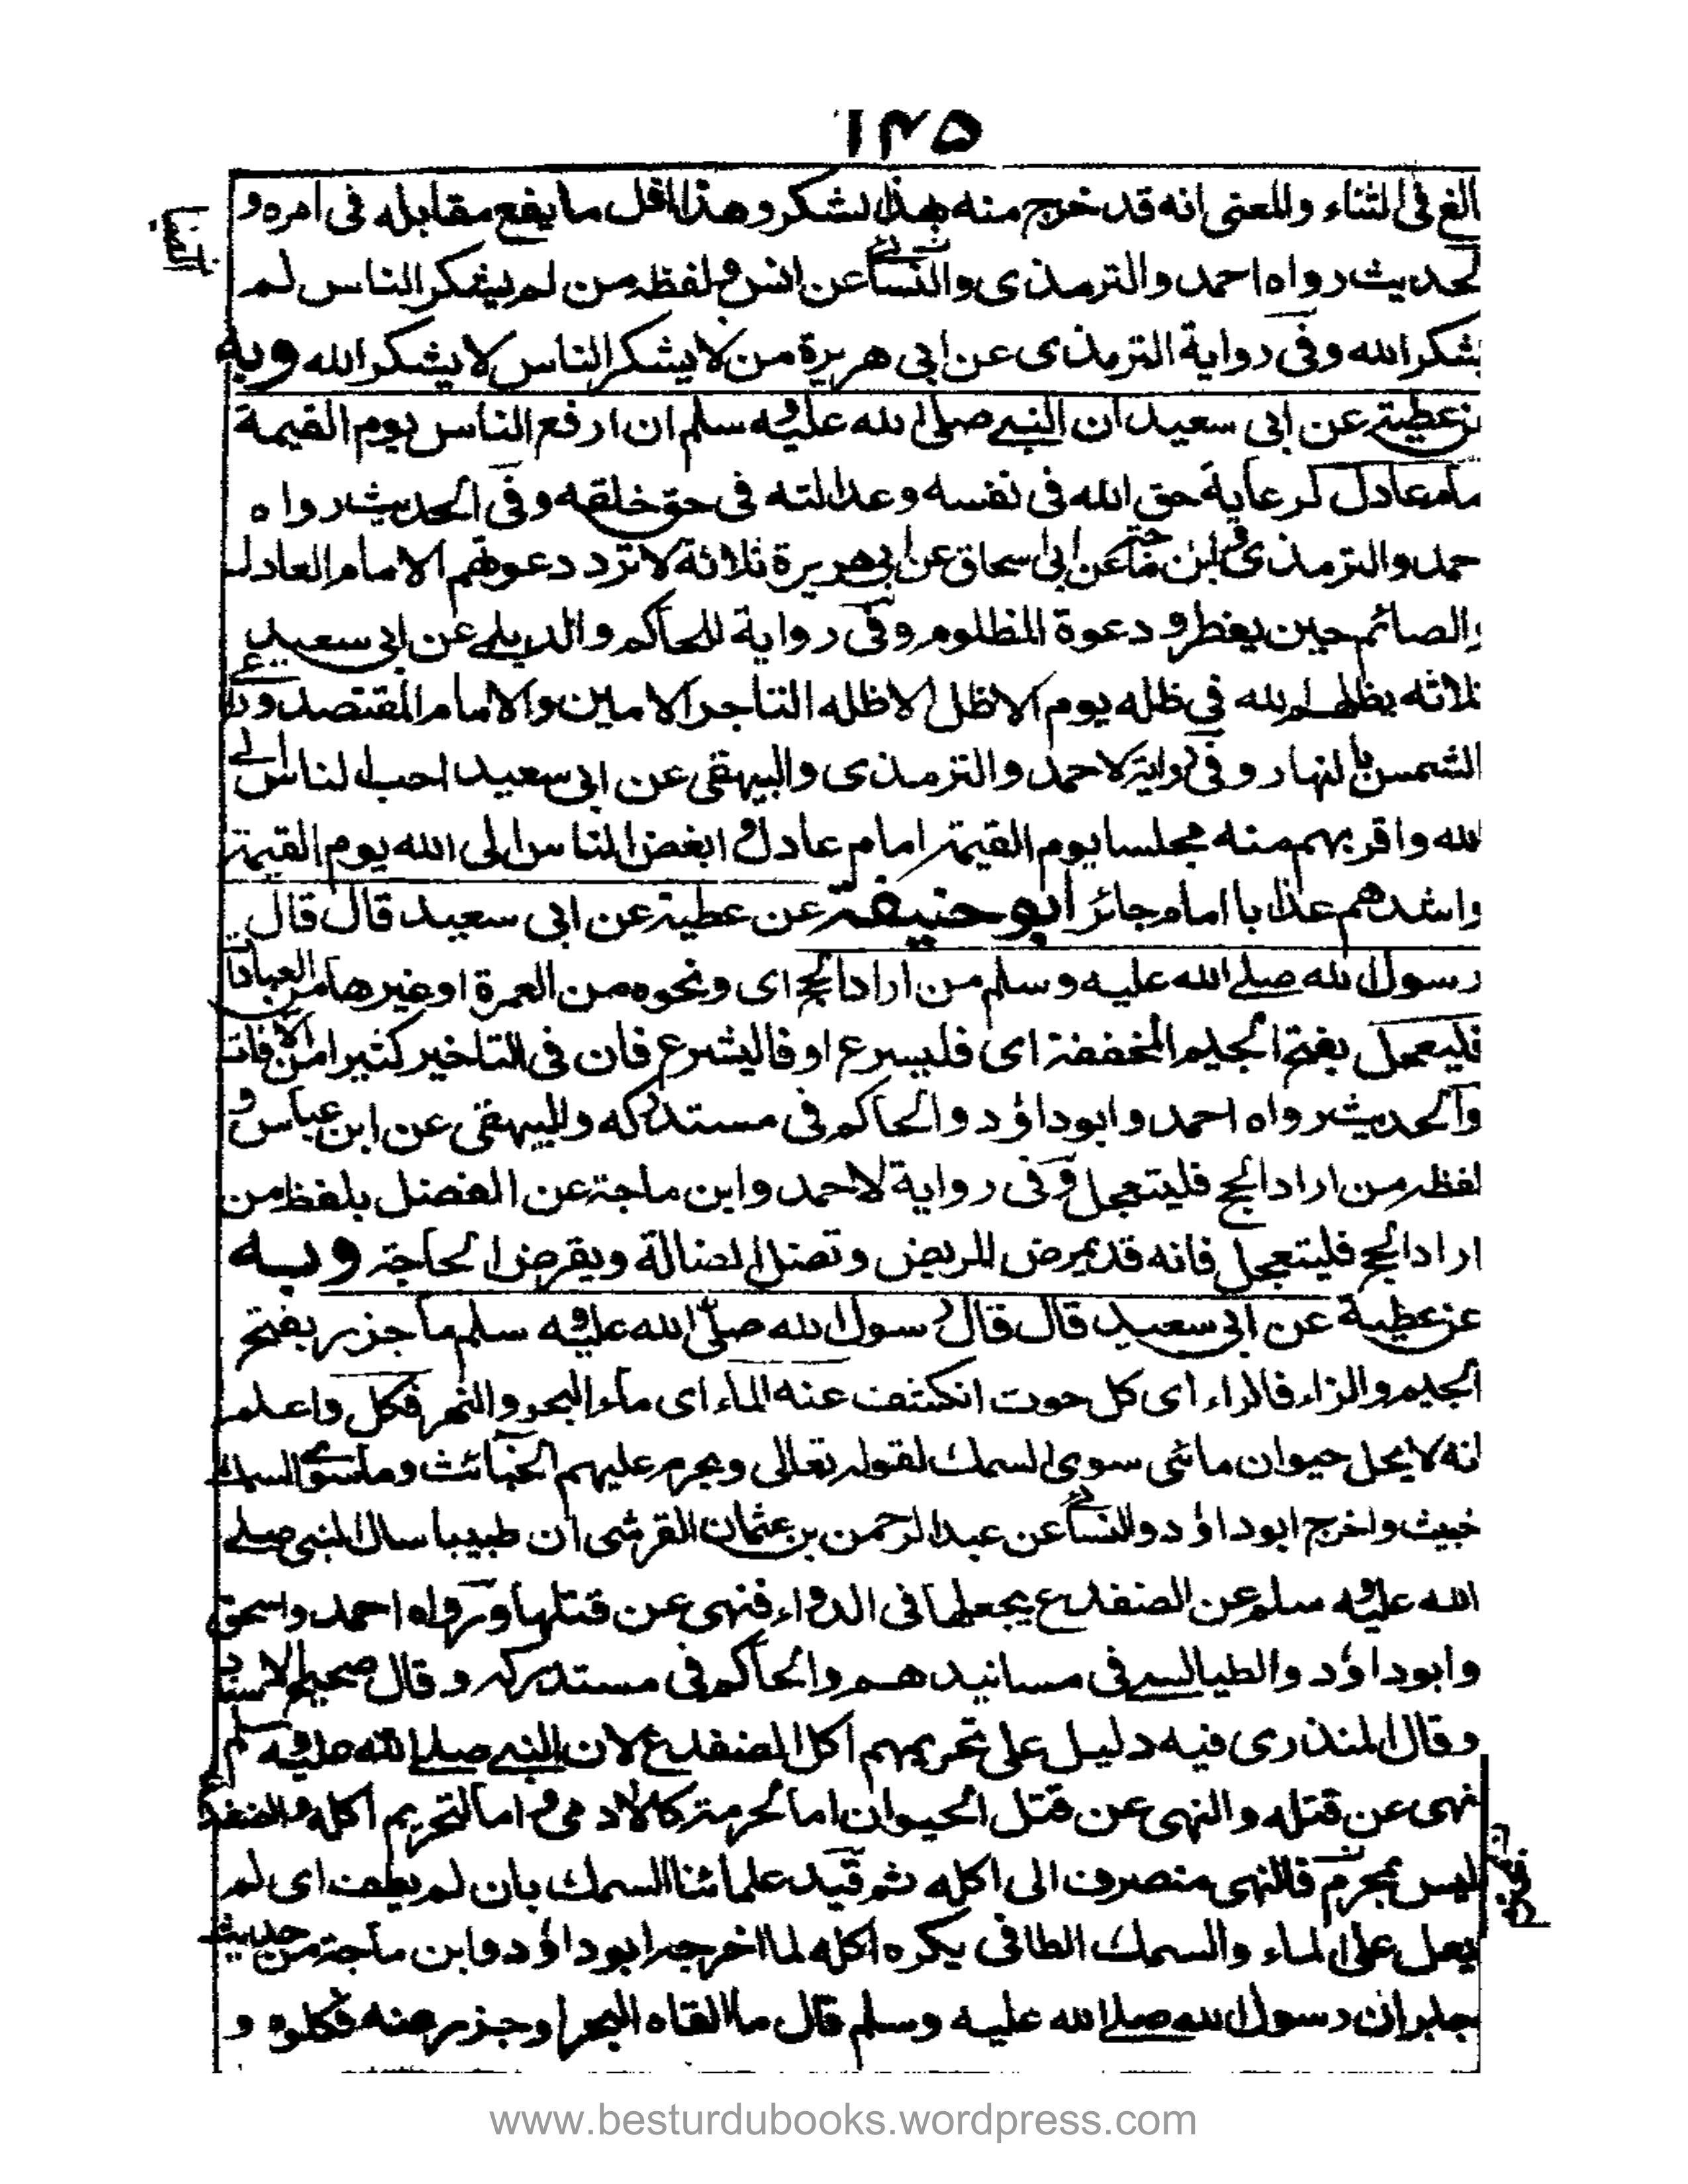 ١٣٥
ابلغ فی الثناء والمعنی انه قد خرج منه بهذا لشکر وهذا اقل ما یقع مقابله فی امره و
لحدیث رواه احمد والترمذی والنسائی عن انس ولفظه من لم یشکر الناس لم
یشکر الله وفی روایة الترمذی عن ابی هریرة من لا یشکر الناس لا یشکر الله وبه
عن عطیة عن ابی سعید ان النبی صلی الله علیه وسلم ان ارفع الناس یوم القیمة
مام عادل لرعایة حق الله فی نفسه وعدالته فی حق خلقه وفی الحدیث رواه
حمد والترمذی وابن ماجة عن ابی اسحاق عن ابی هریرة ثلاثة لا ترد دعوتهم الامام العادل
والصائم حین یفطر ودعوة المظلوم وفی روایة للحاکم والدیلمی عن ابی سعید
ثلاثه یظلهم الله فی ظله یوم لا ظل الا ظله التاجر الامین والامام المقتصد
الشمس بالنهار وفی روایة لاحمد والترمذی والبیهقی عن ابی سعید احب الناس الی
لله واقربهم منه مجلسا یوم القیمة امام عادل وابغض الناس الی الله یوم القیمة
واشدهم عذابا امام جائر ابو حنیفة عن عطیة عن ابی سعید قال قال
رسول الله صلے الله علیه وسلم من اراد الحج ای ونحوه من العمرة او غیرها من العبادات
فلیعجل بفتح الجیم المخففة ای فلیسرع او فالیشرع فان فی التاخیر کثیرا من الآفات
والحدیث رواه احمد وابوداؤد والحاکم فی مستدرکه والبیهقی عن ابن عباس و
لفظه من اراد الحج فلیتعجل وفی روایة لاحمد وابن ماجة عن الفضل بلفظ من
اراد الحج فلیتعجل فانه قد یمرض المریض وتضل الضالة ویقرض الحاجة وبه
عن عطیة عن ابی سعید قال قال رسول الله صلی الله علیه وسلم ما جزر بفتح
الجیم والزاء فالراء ای کل حوت انکشف عنه الماء ای ماء البحر والنهر فکل واعلم
انه لا یحل حیوان مائی سوی السمک لقوله تعالی ویحرم علیهم الخبائث وما سوی السمک
خبیث واخرج ابوداؤد والنسائی عن عبد الرحمن بن عثمان القرشی ان طبیبا سال النبی صلے
الله علیه وسلم عن الضفدع یجعلها فی الدواء فنهی عن قتلها ورواه احمد واسحق
وابوداؤد والطیالسی فی مسانیدهم والحاکم فی مستدرکه وقال صحیح الاسناد
وقال المنذری فیه دلیل علی تحریم اکل الضفدع لان النبی صلے الله علیه وسلم
نهی عن قتله والنهی عن قتل الحیوان اما لحرمته کالادمی واما لتحریم اکله والضفدع
لیس بمحرم فالنهی منصرف الی اکله ثم قید علمائنا السمک بان لم یطف ای لم
یعل علی الماء والسمک الطافی یکره اکله لما اخرجه ابوداؤد وابن ماجة من حدیث
جابر ان رسول الله صلے الله علیه وسلم قال ما القاه البحر او جزر عنه فکلوه و
www.besturdubooks.wordpress.com